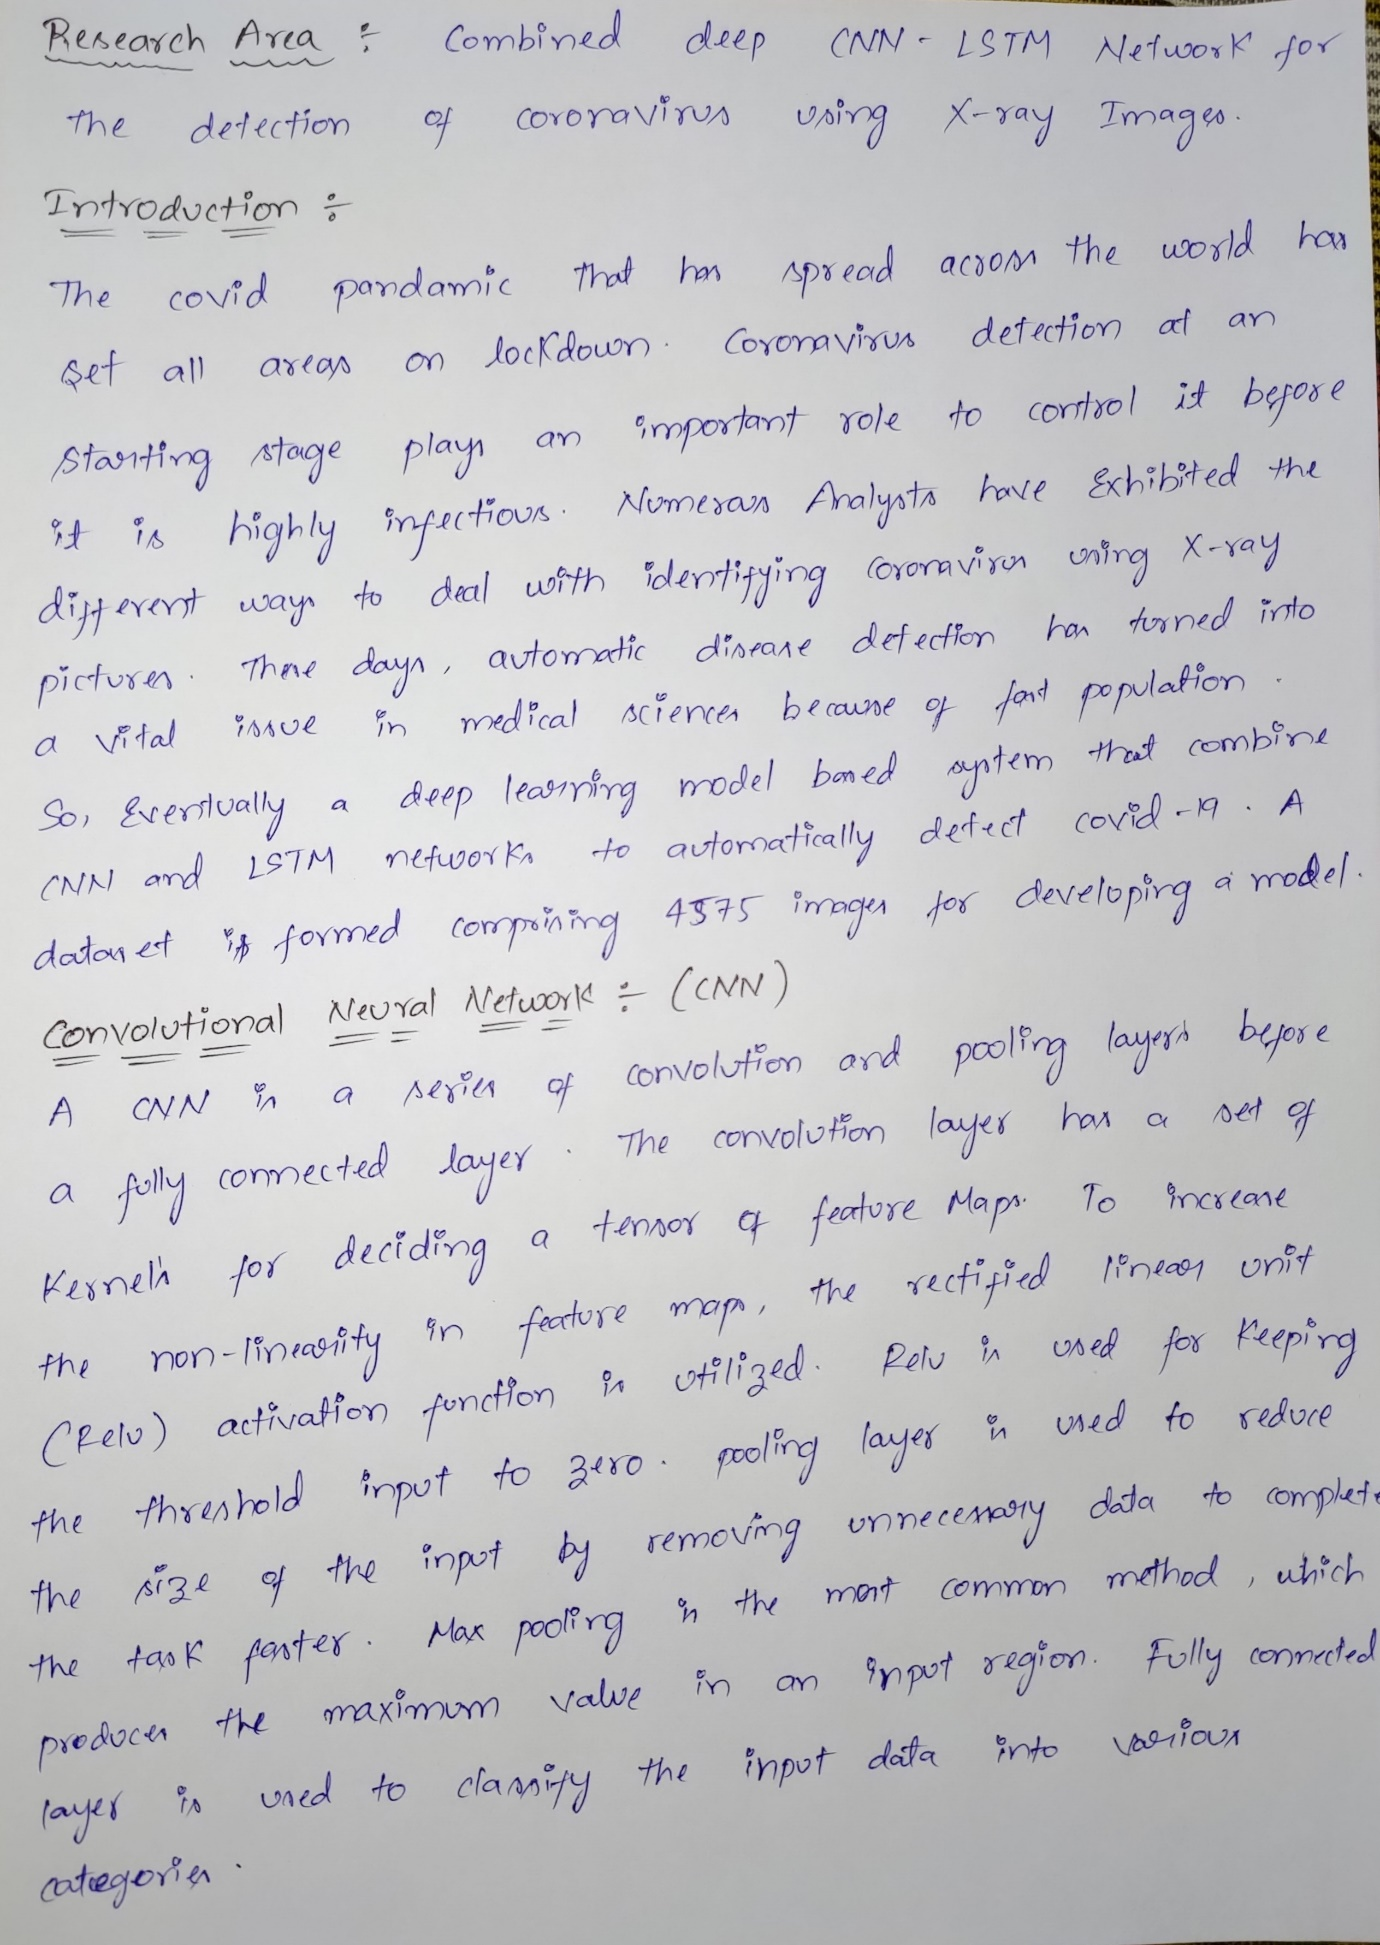 Research Area ÷ Combined deep CNN - LSTM Network for
the detection of coronavirus using X-ray Images.
Introduction ÷
The covid pandamic that has spread across the world has
set all areas on lockdown. Coronavirus detection at an
starting stage plays an important role to control it before
it is highly infectious. Numerous Analysts have Exhibited the
different ways to deal with identifying coronavirus using X-ray
pictures. These days, automatic disease detection has turned into
a vital issue in medical sciences because of fast population.
So, Eventually a deep learning model based system that combine
CNN and LSTM networks to automatically detect covid-19. A
dataset is formed comprising 4575 images for developing a model.
Convolutional Neural Network ÷ (CNN)
A CNN is a series of convolution and pooling layers before
a fully connected layer. The convolution layer has a set of
Kernels for deciding a tensor of feature Maps. To increase
the non-linearity in feature maps, the rectified linear unit
(Relu) activation function is utilized. Relu is used for Keeping
the threshold input to zero. pooling layer is used to reduce
the size of the input by removing unnecessary data to complete
the task faster. Max pooling is the most common method, which
produces the maximum value in an input region. Fully connected
layer is used to classify the input data into various
categories.